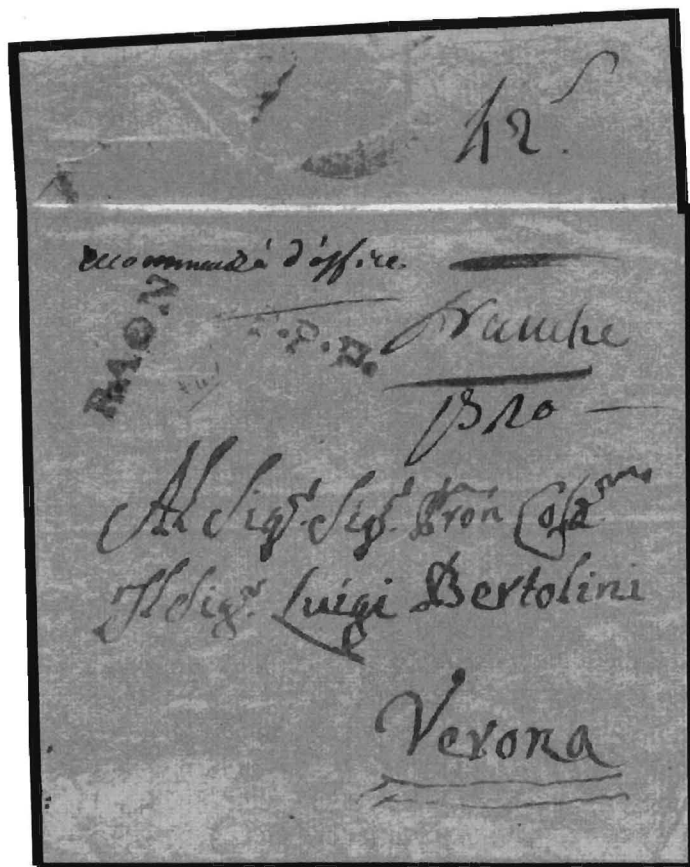 42.
recommandé d'office
R.AO.N
.P.P.
franche
Al Sigr. Sigr. Pron Cols.mo
Il Sigr. Luigi Bertolini
Verona